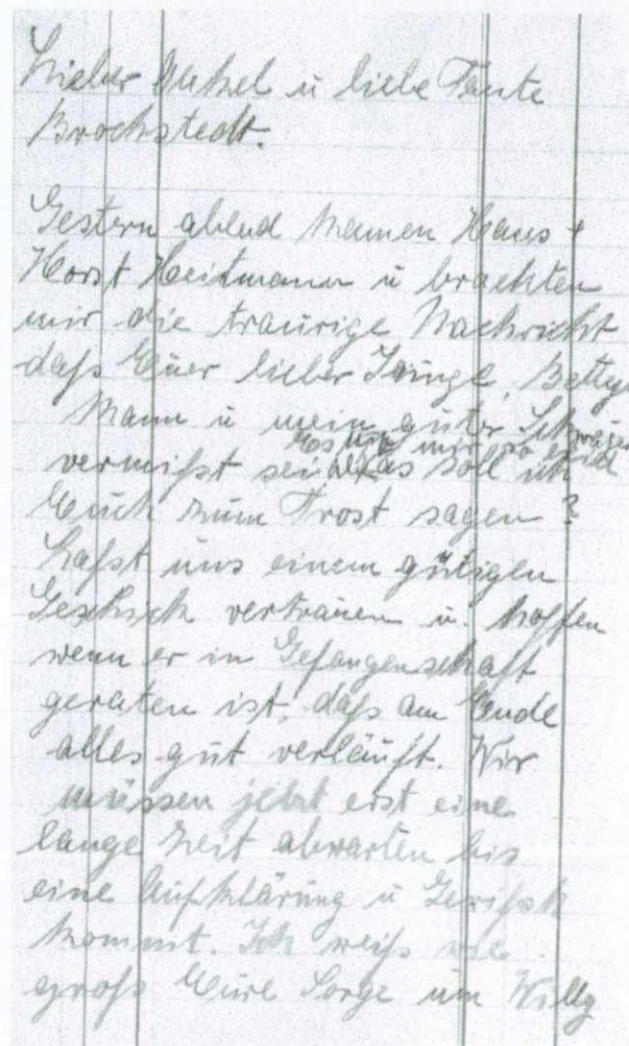 Lieber Onkel u liebe Tante
Brockstedt.
Gestern abend kamen Hans +
Horst Heitmann u brachten
mir die traurige Nachricht
daß Euer lieber Junge, Bettys
Mann u mein guter Schwager
Es tut mir so leid
vermißt sei. Was soll ich
Euch zum Trost sagen?
Laßt uns einem gütigen
Geschick vertrauen u. hoffen
wenn er in Gefangenschaft
geraten ist, daß am Ende
alles gut verläuft. Wir
müssen jetzt erst eine
lange Zeit abwarten bis
eine Aufklärung u
kommt. Ich weiß wie
groß Eure Sorge um Willy